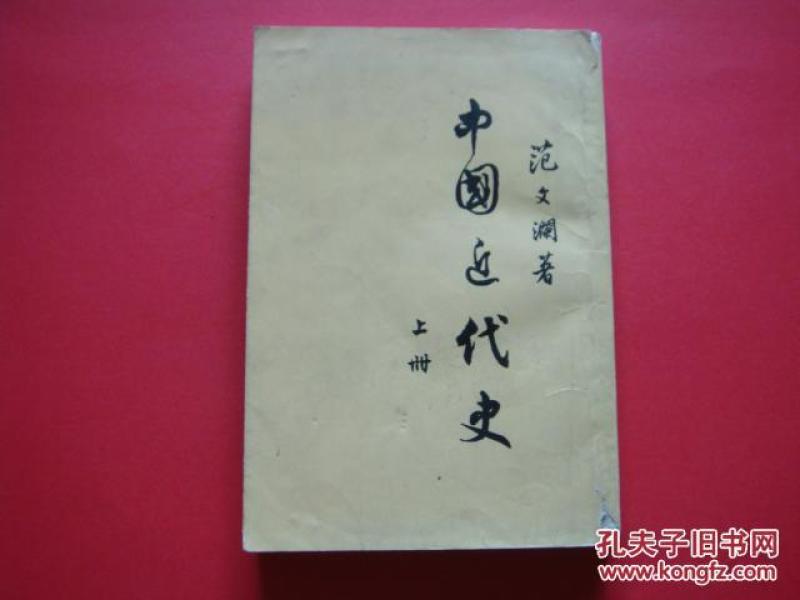 范文澜著
中國近代史
上册
孔夫子旧书网
www.kongfz.com